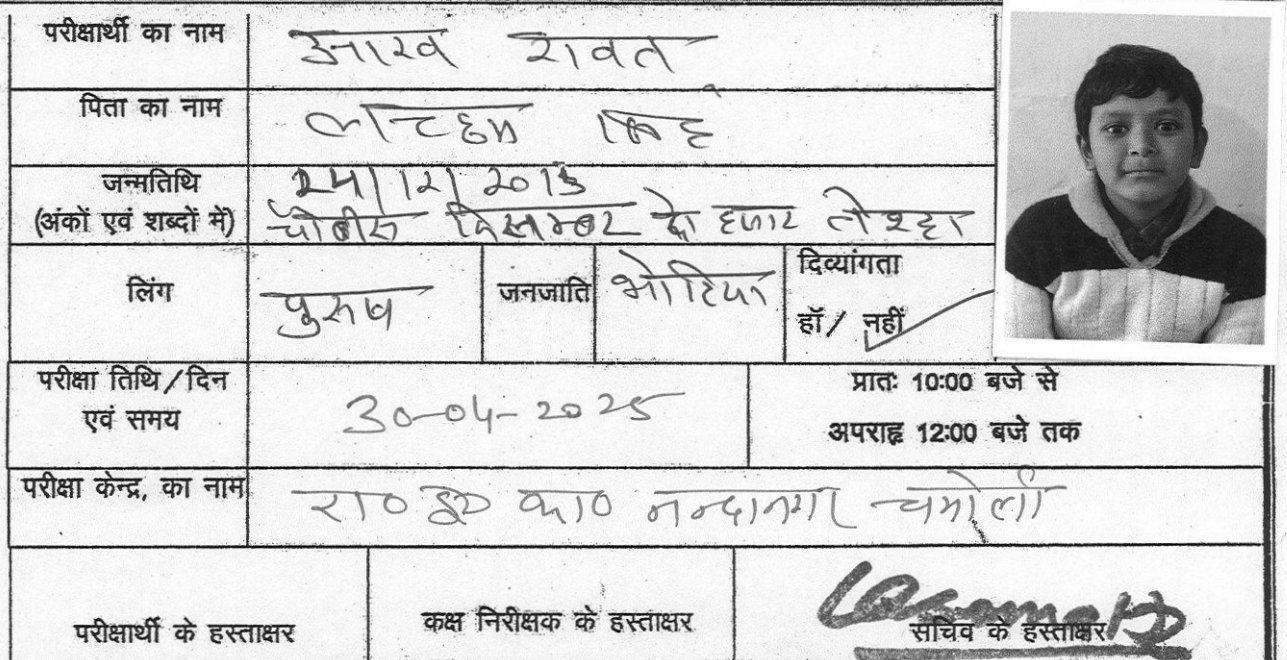 परीक्षार्थी का नाम आरव रावत
पिता का नाम लच्छम सिंह
जन्मतिथि 24/12/2013
(अंकों एवं शब्दों में) चौबीस दिसम्बर दो हजार तेरह
लिंग पुरुष जनजाति भोटिया दिव्यांगता
हाँ / नहीं
परीक्षा तिथि / दिन 30-04-2025 प्रातः 10:00 बजे से
एवं समय अपराह्न 12:00 बजे तक
परीक्षा केन्द्र, का नाम रा० इ० का० नन्दानगर चमोली
परीक्षार्थी के हस्ताक्षर कक्ष निरीक्षक के हस्ताक्षर सचिव के हस्ताक्षर